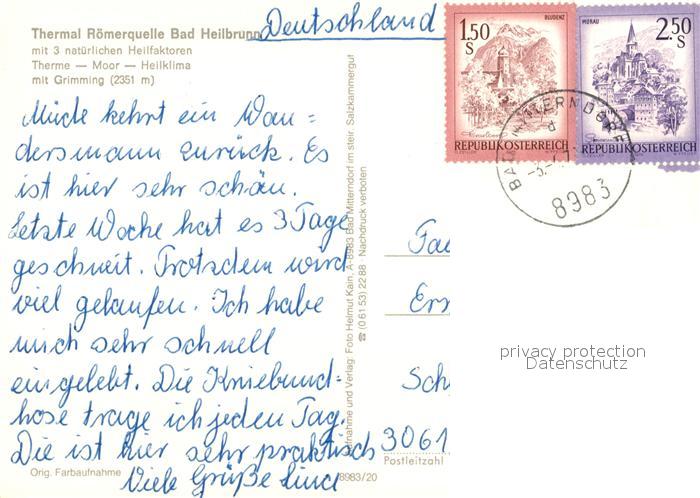 Thermal Römerquelle Bad Heilbrunn
mit 3 natürlichen Heilfaktoren
Therme — Moor — Heilklima
mit Grimming (2351 m)
Deutschland
BLUDENZ
1.50
S
REPUBLIK ÖSTERREICH
MURAU
2.50
S
REPUBLIK ÖSTERREICH
8983
Müde kehrt ein Wan=
dersmann zurück. Es
ist hier sehr schön.
Letzte Woche hat es 3 Tage
geschneit. Trotzdem wird
viel gelaufen. Ich habe
mich sehr schnell
eingelebt. Die Kniebund=
hose trage ich jeden Tag.
Die ist hier sehr praktisch
Viele Grüße
Orig. Farbaufnahme
8983/20
Aufnahme und Verlag: Foto Helmut Kain, A-8983 Bad Mitterndorf im steir. Salzkammergut
☎ (0 61 53) 22 88 Nachdruck verboten
3061
Postleitzahl
privacy protection
Datenschutz